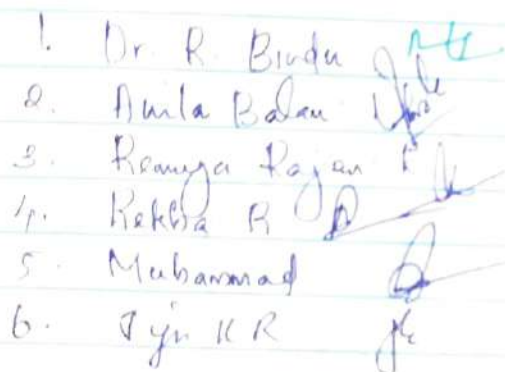 1. Dr. R. Bindu
2. Anila Balan
3. Remya Rajan
4. Rekha R
5. Muhammad
6. K R